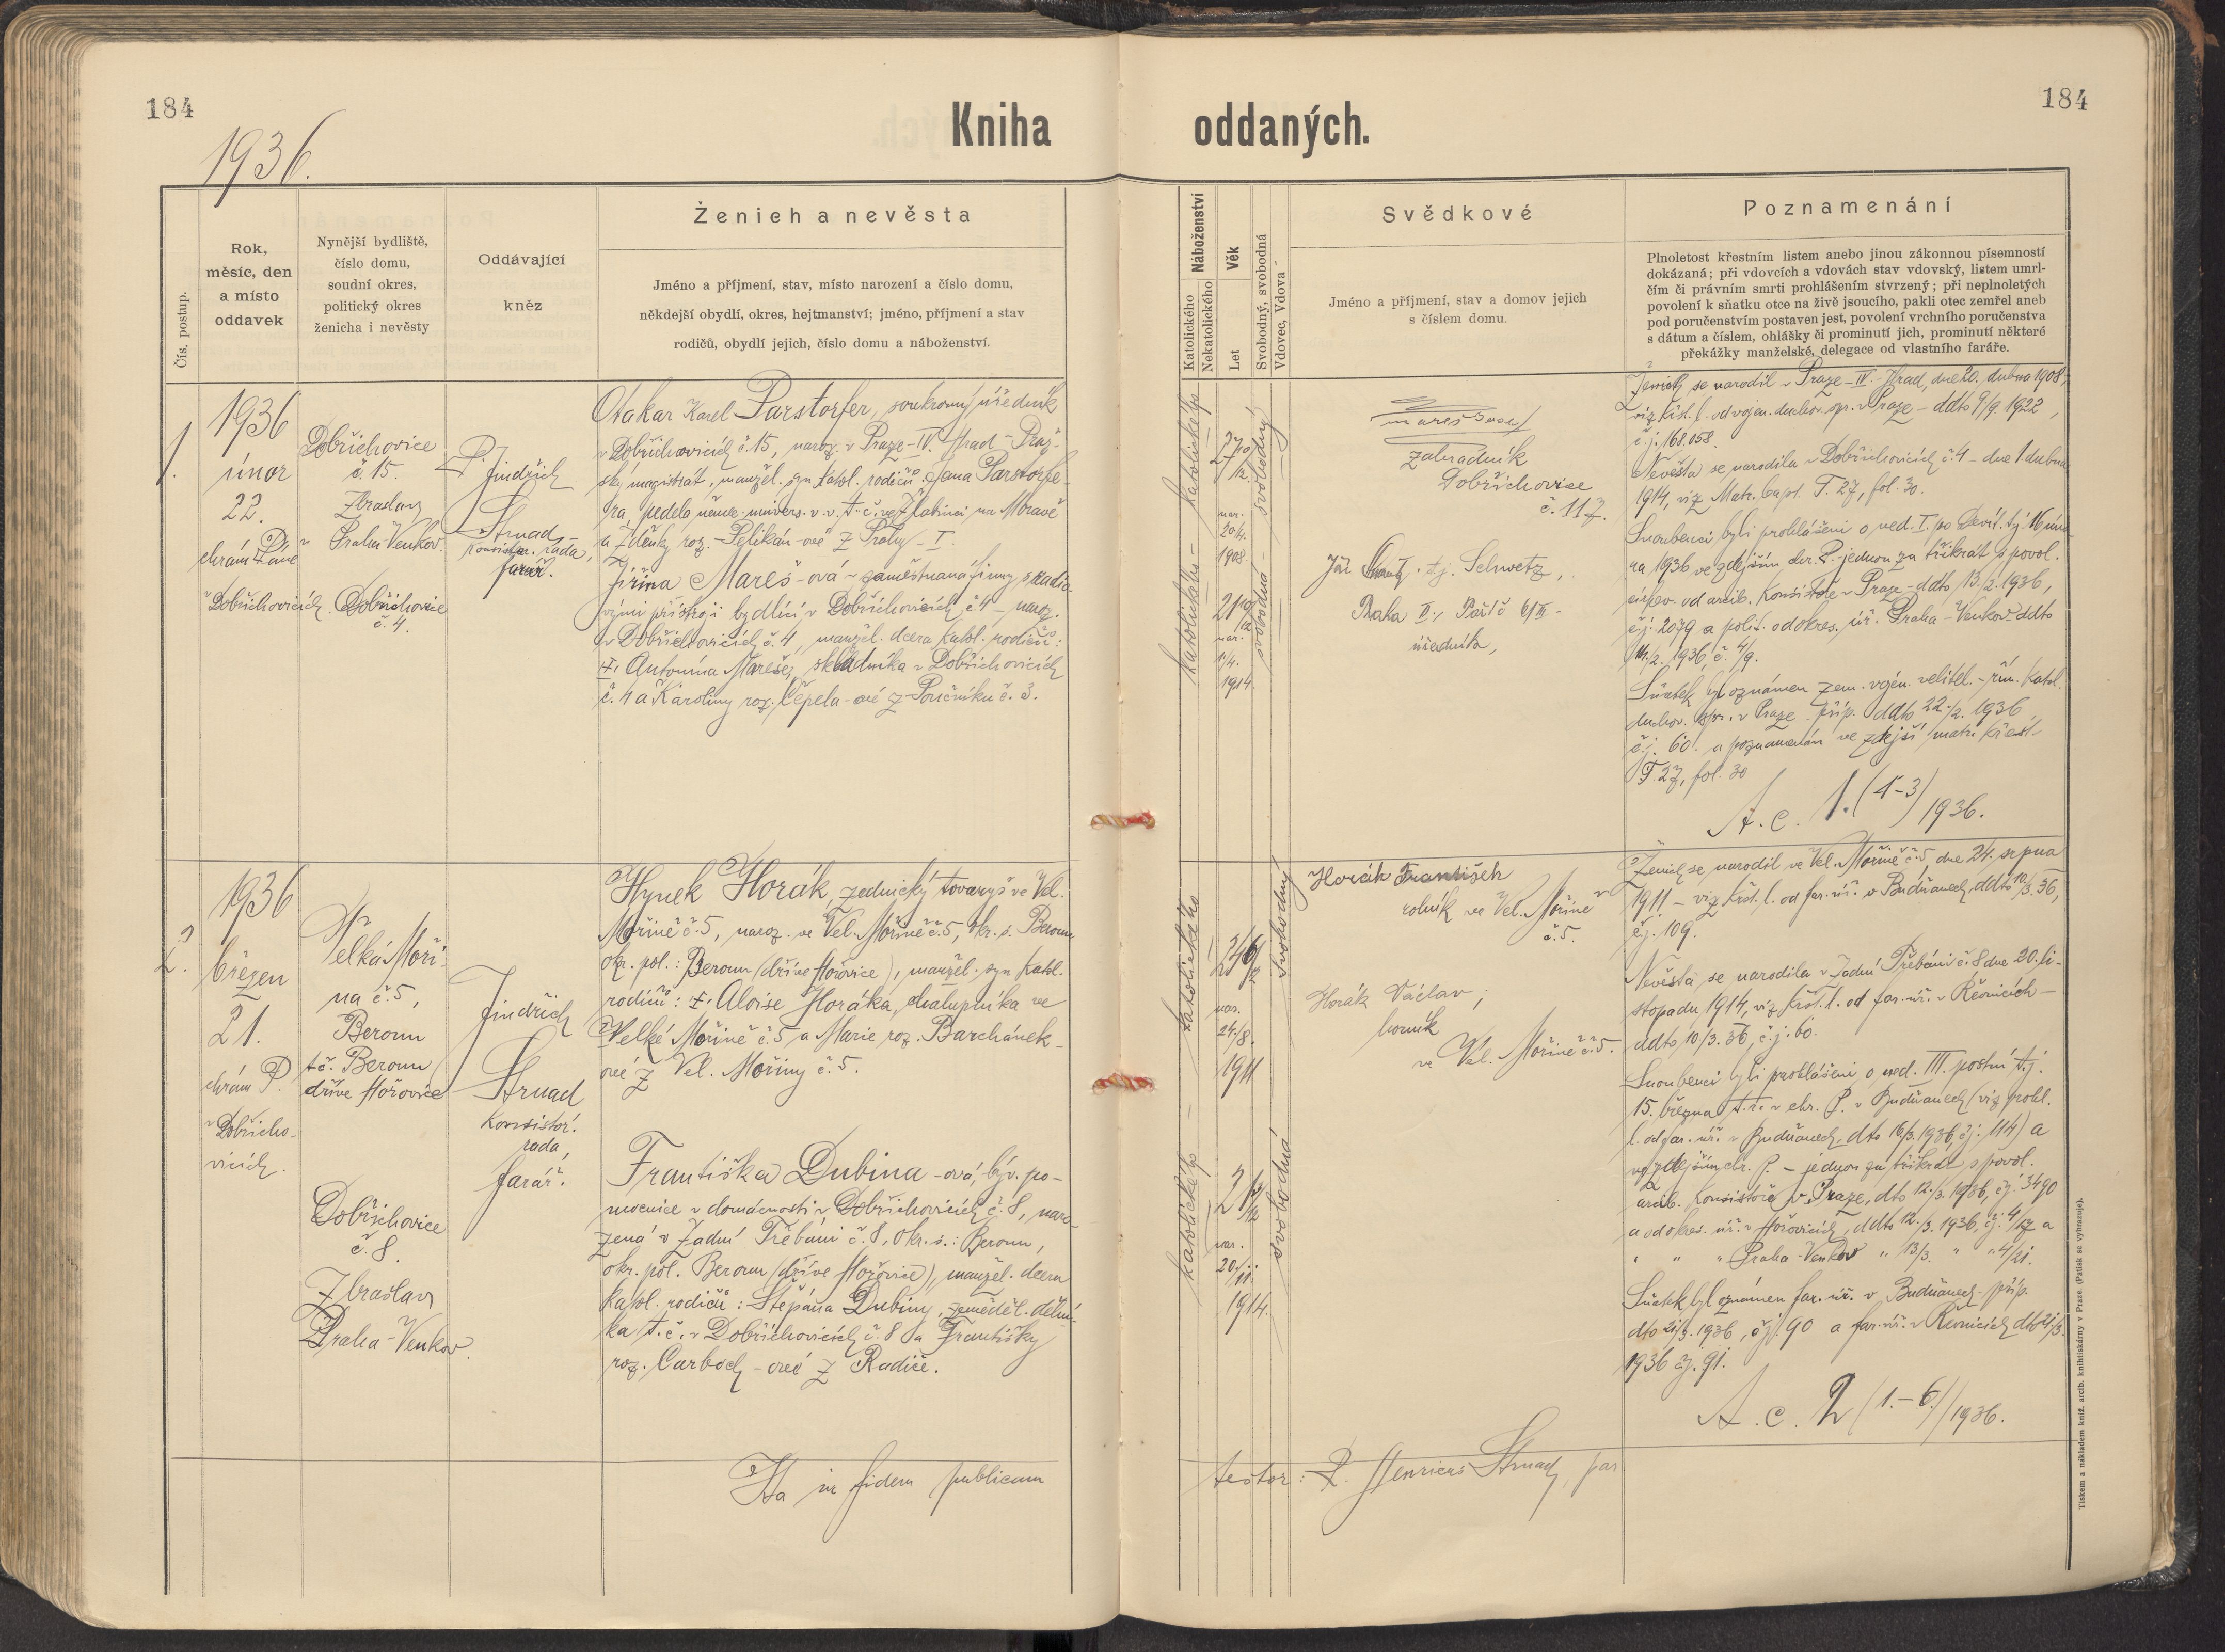 184
184
Kniha oddaných.
1936.
Čís. postup.
Rok,
měsíc, den
a místo
oddavek
Nynější bydliště,
číslo domu,
soudní okres,
politický okres
ženicha i nevěsty
Oddávající
kněz
Ženich a nevěsta
Jméno a příjmení, stav, místo narození a číslo domu,
někdejší obydlí, okres, hejtmanství; jméno, příjmení a stav
rodičů, obydlí jejich, číslo domu a náboženství.
Náboženství
Katolického
Nekatolického
Věk
Let
Svobodný, svobodná
Vdovec, Vdova
Svědkové
Jméno a příjmení, stav a domov jejich
s číslem domu.
Poznamenání
Plnoletost křestním listem anebo jinou zákonnou písemností
dokázaná; při vdovcích a vdovách stav vdovský, listem umrl-
čím či právním smrti prohlášením stvrzený; při neplnoletých
povolení k sňatku otce na živě jsoucího, pakli otec zemřel aneb
pod poručenstvím postaven jest, povolení vrchního poručenstva
s dátum a číslem, ohlášky či prominutí jich, prominutí některé
překážky manželské, delegace od vlastního faráře.
1.
1936
únor
22.
chrám Páně
v Dobřichovicích.
Dobřichovice
č. 15.
Zbraslav
Praha-Venkov.
Dobřichovice
č. 4.
P.
Jindřich
Strnad,
konsistor. rada,
farář.
Otakar Karel Parstorfer, soukromý úředník
v Dobřichovicích č. 15, naroz. v Praze-IV. Hrad-Praž-
ský magistrát, manžel. syn katol. rodičů: Jana Parstorfe-
ra, pedela něme. univers. v. v. t. č. ve Zlabinci na Moravě
a Zdeňky roz. Pelikán-ové z Prahy-I.
Jiřina Mareš-ová - zaměstnaná firmy s radio-
vými přístroji bydlící v Dobřichovicích č. 4 - naroz.
v Dobřichovicích č. 4, manžel. dcera katol. rodičů:
† Antonína Mareše, skladníka v Dobřichovicích
č. 4 a Karoliny roz. Čepela-ové z Poučníku č. 3.
katolického - katolického
27 10/12.
nar.
20/4.
1908.
21 10/12
nar.
1/4.
1914.
svobodná - svobodný
zahradník
Dobřichovice
č. 117.
t. j. Schwetz,
Praha II., Poříč 6/III -
úředník,
Ženich se narodil v Praze-IV. Hrad, dne 20. dubna 1908,
viz křst. l. od vojen. duchov. spr. v Praze - ddto 9/9. 1922,
č. j. 168.058.
Nevěsta se narodila v Dobřichovicích č. 4 - dne 1. dubna
1914, viz Matr. bapt. T. 27, fol. 30.
Snoubenci byli prohlášeni o ned. I. po Devít. t. j. 16. úno-
ra 1936 ve zdejším chr. P. jednou za třikrát s povol.
církev. od arcib. Konsistoře v Praze - ddto 13/2. 1936,
č. j. 2079 a polit. od okres. úř. Praha-Venkov - ddto
14/2. 1936, č. 4/9.
Sňatek byl oznámen zem. vojen. velitel. - řím. katol.
duchov. spr. v Praze - příp. ddto 22./2. 1936,
č. j. 60. a poznamenán ve zdejší matri křest.
T. 27, fol. 30
A. c. 1. (1-3) 1936.
2.
1936
březen
21.
chrám P.
v Dobřicho-
vicích.
Velká Moři-
na č. 5,
Beroun
tč. Beroun
dříve Hořovice
Dobřichovice
č. 8.
Zbraslav
Praha-Venkov.
Jindřich
Strnad
konsistor.
rada,
farář.
Hynek Horák, zednický tovaryš ve Vel.
Mořině č. 5, naroz. ve Vel. Mořině č. 5, okr. s. Beroun
okr. pol.: Beroun (dříve Hořovice), manžel. syn katol.
rodičů: † Aloise Horáka, chalupníka ve
Velké Mořině č. 5 a Marie roz. Barchánek-
ové z Vel. Mořiny č. 5.
Františka Dubina-ová, býv. po-
mocnice v domácnosti v Dobřichovicích č. 8, naro-
zená v Zadní Třebáni č. 8, okr. s.: Beroun,
okr. pol. Beroun (dříve Hořovice), manžel. dcera
katol. rodičů: Štěpána Dubiny, zeměděl. dělní-
ka t. č. v Dobřichovicích č. 8 a Františky
roz. Carboch-ové z Radíče.
katolického - katolického
24 6/12
nar.
24./8.
1911
21
nar.
20./11.
1914.
svobodná
svobodný
Horák František
rolník ve Vel. Mořině
č. 5.
Horák Václav,
horník
ve Vel. Mořině č. 5.
Ženich se narodil ve Vel. Mořině č. 5, dne 24. srpna
1911 - viz křst. l. od far. úř. v Budňanech, ddto 10/3. 36,
č. j. 109.
Nevěsta se narodila v Zadní Třebáni č. 8 dne 20. li-
stopadu 1914, viz křst. l. od far. úř. v Řevnicích -
ddto 10/3. 36, č. j. 60.
Snoubenci byli prohlášeni o ned. III. postní t. j.
15. března t. r. v chr. P. v Budňanech (viz prohl.
l. od far. úř. v Budňanech, dto 16/3. 1936, č. j. 114) a
ve zdejším chr. P. - jednou za třikrát s povol.
arcib. Konsistoře v Praze, dto 12./3. 1936, č. j. 3490
a od okres. úř. v Hořovicích, ddto 12./3. 1936, č. j. 4/ a
" " " Praha-Venkov " 13/3. " " 4/21.
Sňatek byl oznámen far. úř. v Budňanech - příp.
dto 21/3. 1936, č. j. 90 a far. úř. v Řevnicích dto 21/3.
1936 č. j. 91.
A. c. 2 (1.-6.)/1936.
Ita in fidem publicam
testor: P. Henricus Strnad, far.
Tiskem a nákladem kníž. arcib. knihtiskárny v Praze. (Patisk se vyhrazuje).